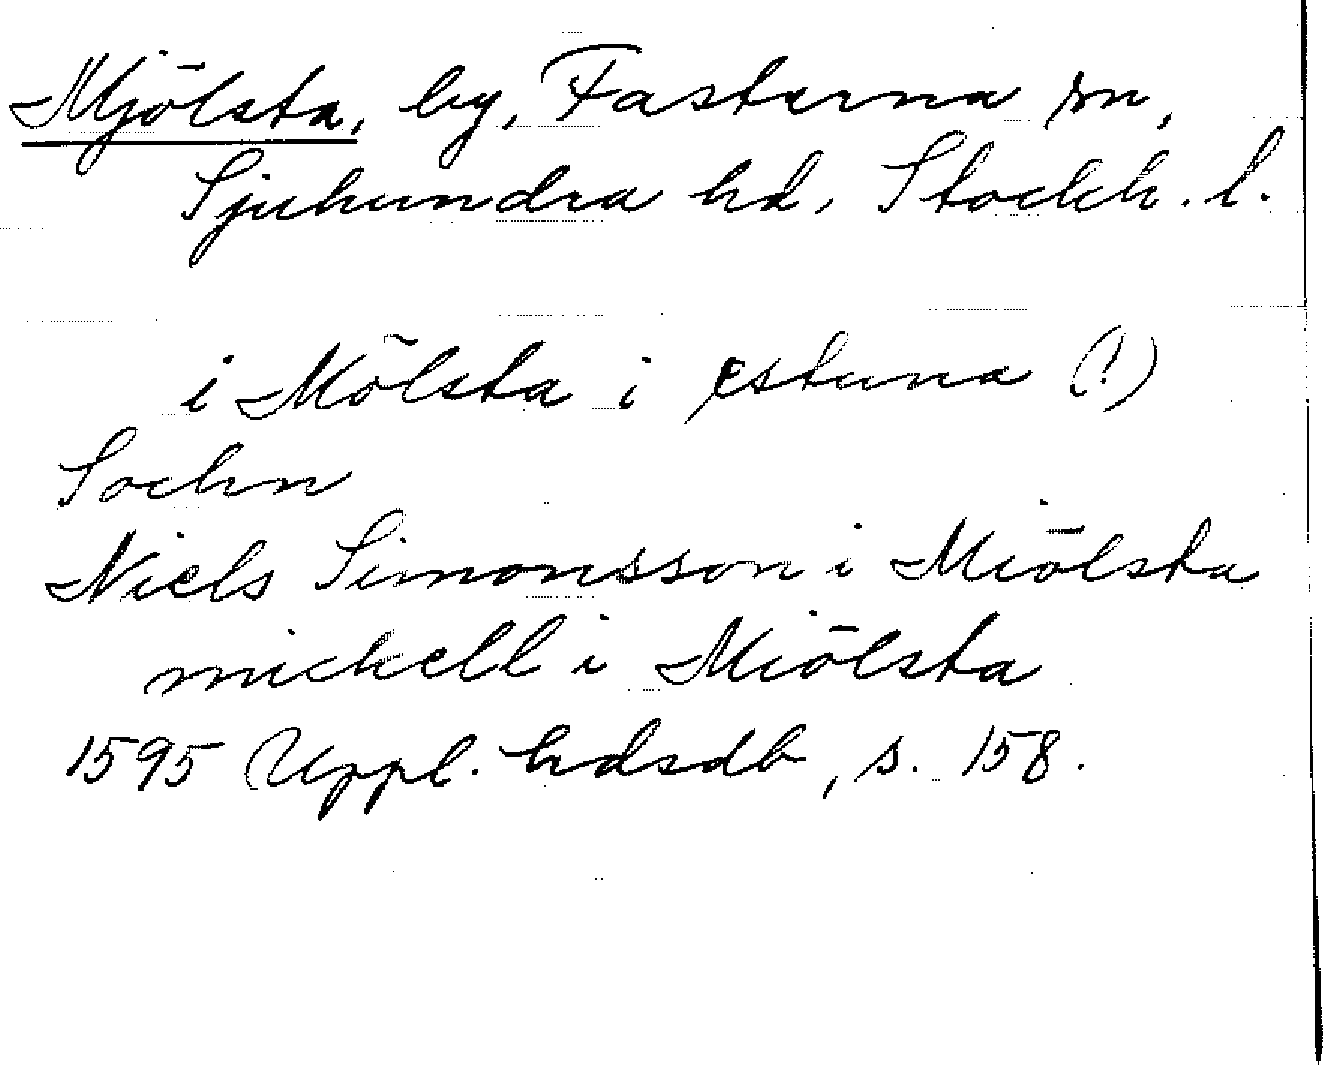 Mjölsta, by, Fasterna sn,
Sjuhundra hd, Stockh. l.
i Mölsta i estuna (!)
Sochn
Niels Simonsson i Miölsta
michell i Miölsta
1595 Uppl. hdsdb, s. 158.